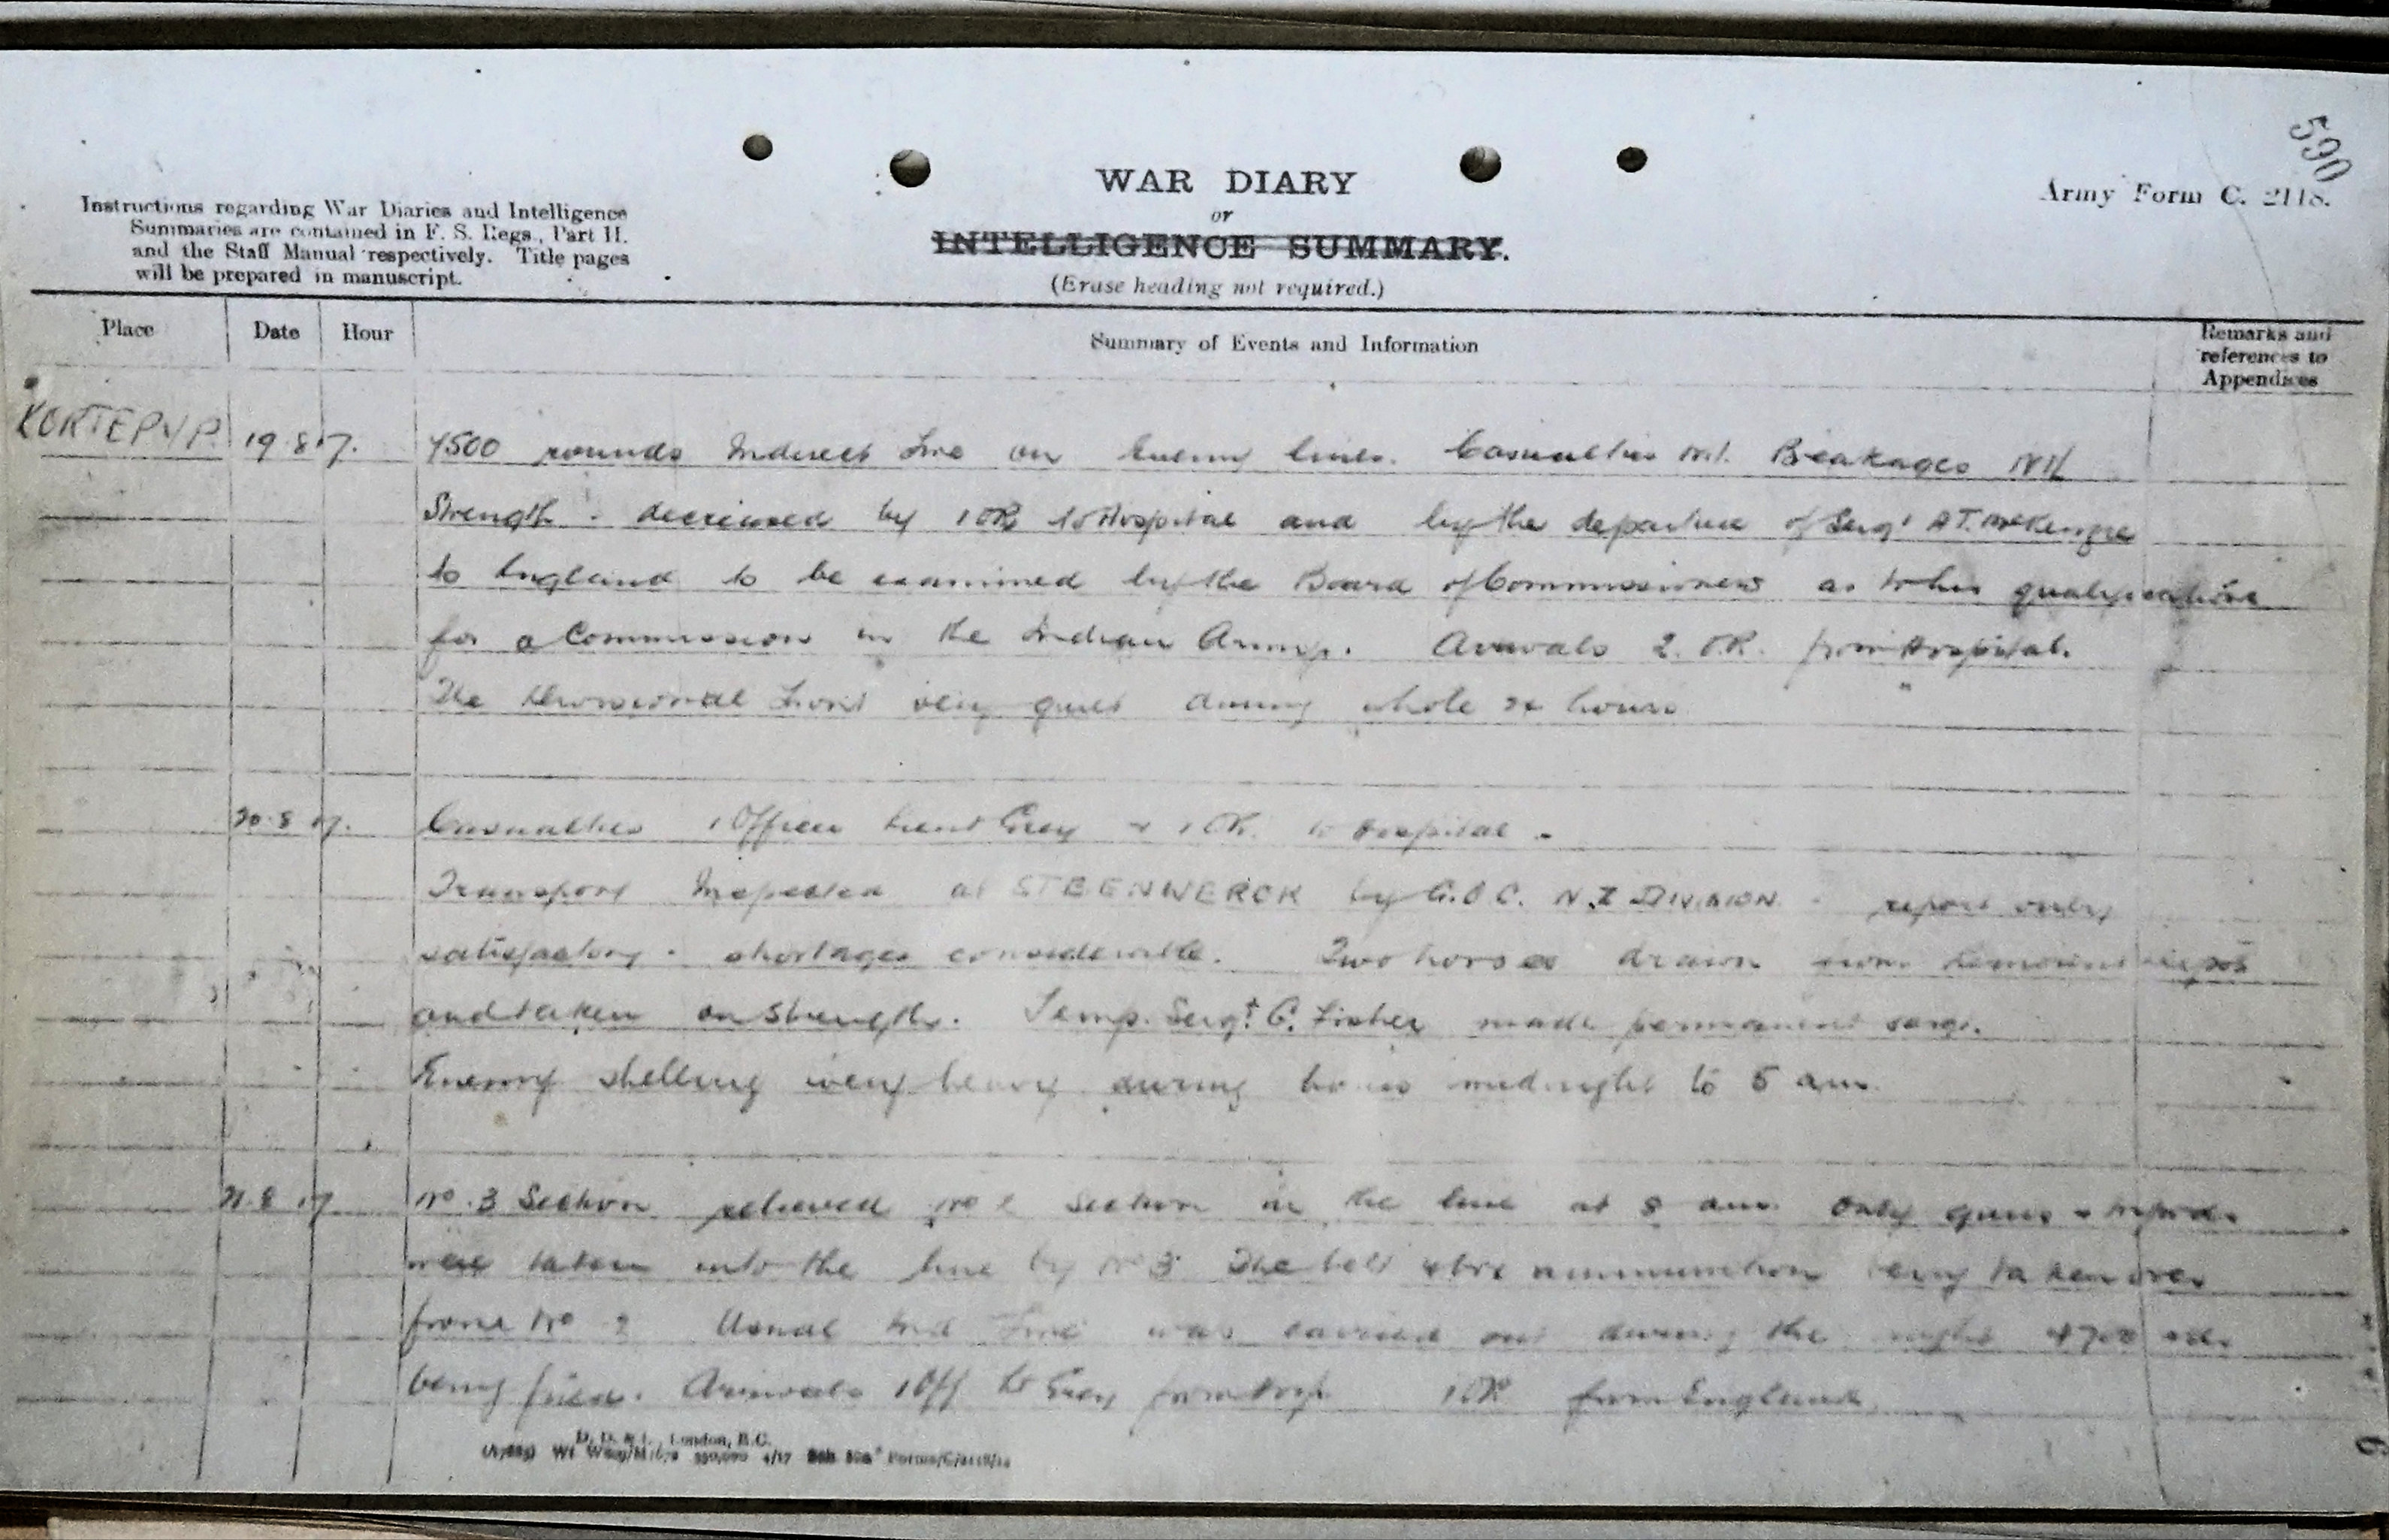 590
Army Form C. 2118.
WAR DIARY
or
INTELLIGENCE SUMMARY.
(Erase heading not required.)
Instructions regarding War Diaries and Intelligence
Summaries are contained in F. S. Regs., Part II.
and the Staff Manual respectively. Title pages
will be prepared in manuscript.
Place Date Hour Summary of Events and Information Remarks and
references to
Appendices
KORTEPYP. 19.8.17. 4500 rounds Indirect Fire on Enemy lines. Casualties Nil. Breakages Nil
Strength - decreased by 1 OR to Hospital and by the departure of Sergt A T. McKenzie
to England to be examined by the Board of Commissioners as to his qualifications
for a Commission in the Indian Army. Arrivals 2. OR. from Hospital.
The Divisional Front very quiet during whole 24 hours
20.8.17. Casualties 1 Officer Lieut Grey + 1 OR. to Hospital -
Transport Inspected at STEENWERCK by G.O.C. N.Z DIVISION - report only
satisfactory - shortages considerable. Two horses drawn from Remount Depot
and taken on Strength. Temp. Sergt. G. Fisher made permanent sergt.
Enemy shelling very heavy during hours midnight to 5 am.
21.8.17 No. 3 Section relieved No 2 Section in the line at 8 am. Only guns + tripods
were taken into the line by No 3 The belt + box ammunition being taken over
from No 2 Usual Ind Fire was carried out during the night 4700 rds
being fired. Arrivals 1 Off Lt Grey from Hosp 1 OR from England
D. D. & L., London, E.C.